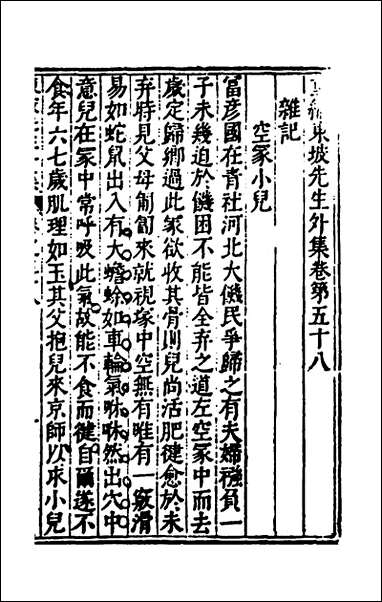 重編東坡先生外集卷第五十八
雜記
空冢小兒
富彦國在青社河北大饑民爭歸之有夫婦襁負一
子未幾迫於饑困不能皆全弃之道左空冢中而去
歲定歸鄉過此冢欲收其骨則兒尚活肥健愈於未
弃時見父母匍匐來就視塚中空無有唯有一竅滑
易如蛇鼠出入有大蟾蜍如車輪氣咻咻然出穴中
意兒在冢中常呼吸此氣故能不食而健自爾遂不
食年六七歲肌理如玉其父抱兒來京師以求小兒